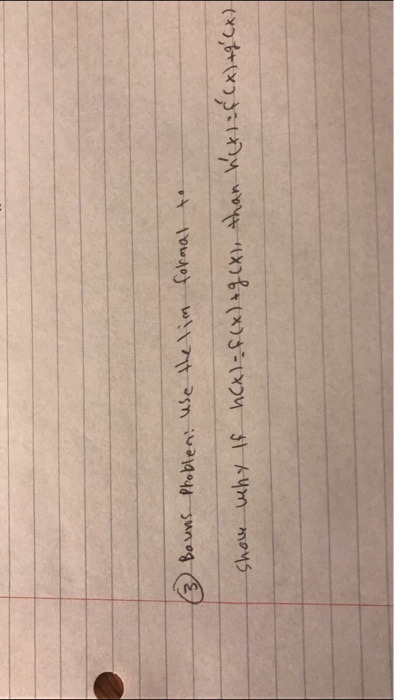 ③ Bouns Problem: Use the lim formal to
Show why If h(x)=f(x)+g(x), than h'(x)=f'(x)+g'(x)